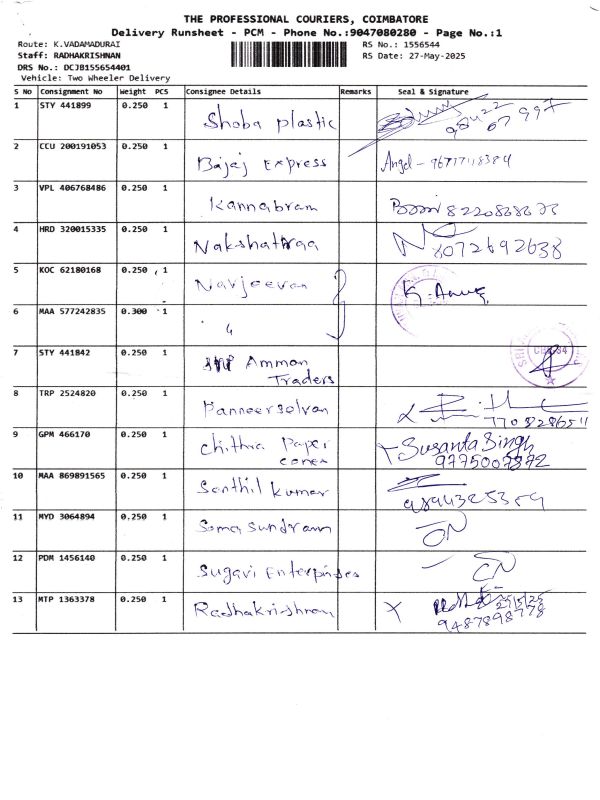 THE PROFESSIONAL COURIERS, COIMBATORE
Delivery Runsheet - PCM - Phone No.:9047080280 - Page No.:1
Route: K.VADAMADURAI RS No.: 1556544
Staff: RADHAKRISHNAN RS Date: 27-May-2025
DRS No.: DCJB155654401
Vehicle: Two Wheeler Delivery
S NO Consignment No Weight PCS Consignee Details Remarks Seal & Signature
1 STY 441899 0.250 1 Shoba plastic
2 CCU 200191053 0.250 1 Bajaj Express Angel -
3 VPL 406768486 0.250 1 Kannabram
4 HRD 320015335 0.250 1 Nakshathraa 8072692638
5 KOC 62180168 0.250 1 Navjeevan
6 MAA 577242835 0.300 1 "
7 STY 441842 0.250 1 Amman
Traders
8 TRP 2524820 0.250 1 Panneerselvan
9 GPM 466170 0.250 1 Chithra Paper Susanta Singh
9775007872
10 MAA 869891565 0.250 1 Senthil kumar
11 MYD 3064894 0.250 1 Soma Sundram
12 PDM 1456140 0.250 1 Sugavi Enterprises
13 MTP 1363378 0.250 1 Radhakrishnan 27/5/25
9487898778